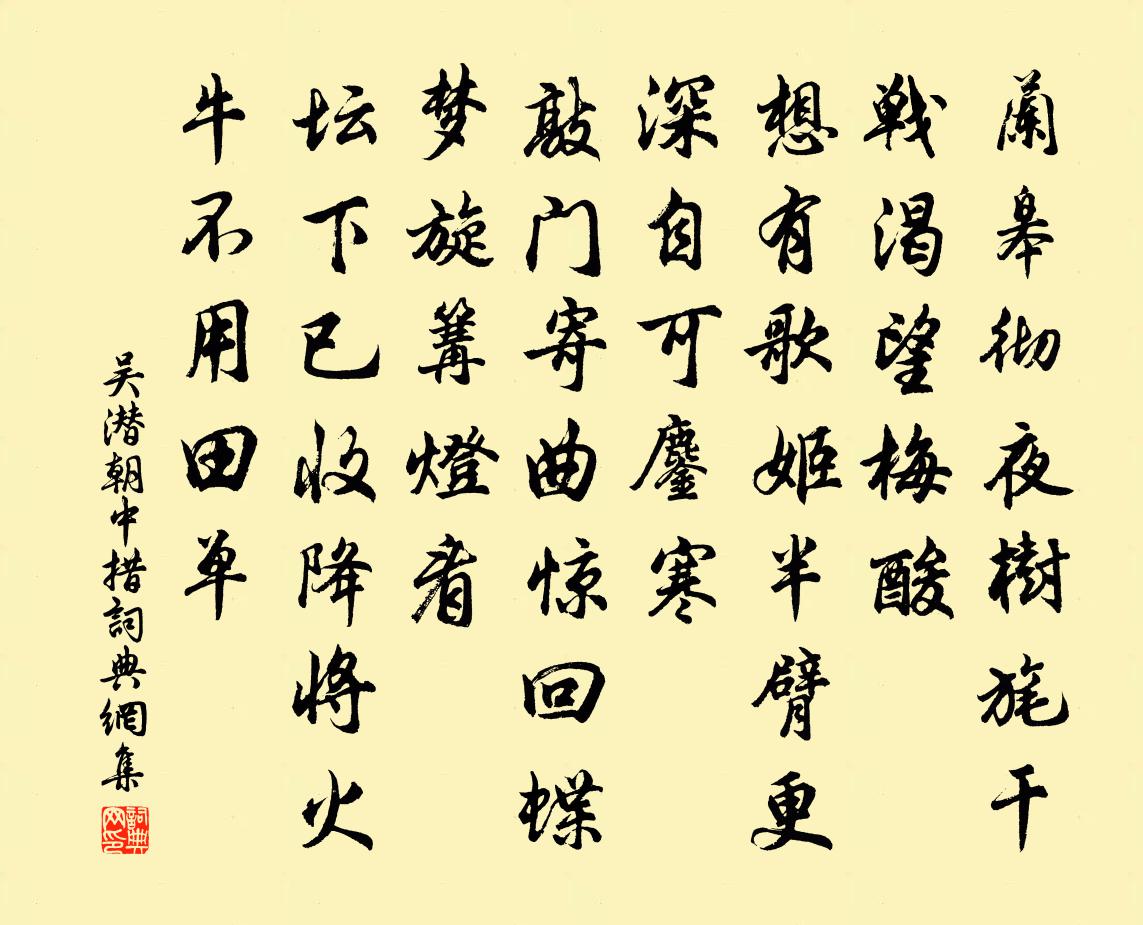 蘭皋彻夜樹旄干
戦渴望梅酸
想有歌姬半臂更
深自可鏖寒
敲门寄曲惊回蝶
梦旋篝燈看
坛下已收降将火
牛不用田单
吴潜朝中措詞典網集
詞典网印